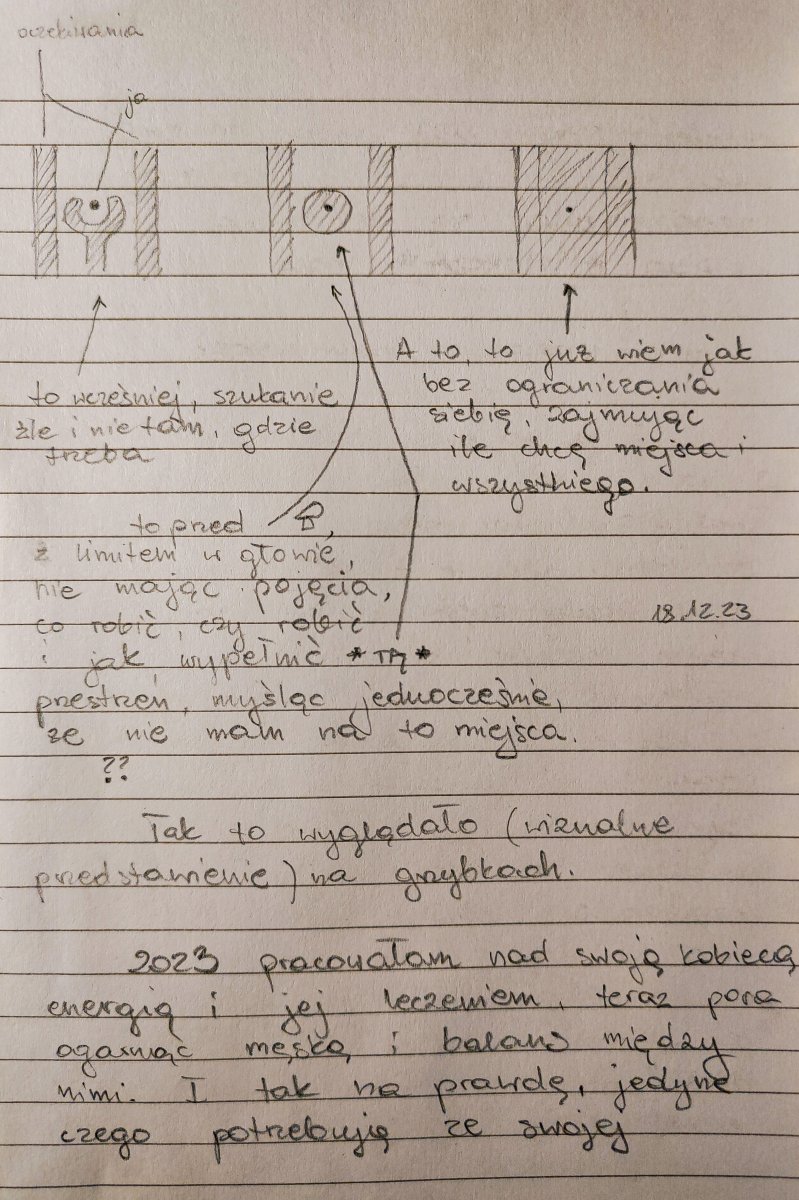 oczekiwania
ja
to wcześniej, szukanie
źle i nie tam, gdzie
trzeba
A to, to już wiem jak
bez ograniczania
siebie, zajmując
ile chcę miejsca i
wszystkiego.
to przed
z limitem w głowie,
nie mając pojęcia,
co robić, czy robić
i jak wypełnić *TĄ*
przestrzeń, myśląc jednocześnie,
że nie mam na to miejsca.
??
18.12.23
Tak to wyglądało (wizualne
przedstawienie) na grzybkach.
2023 pracowałam nad swoją kobiecą
energią i jej leczeniem, teraz pora
ogarnąć męską i balans między
nimi. I tak na prawdę, jedyne
czego potrzebuję ze swojej